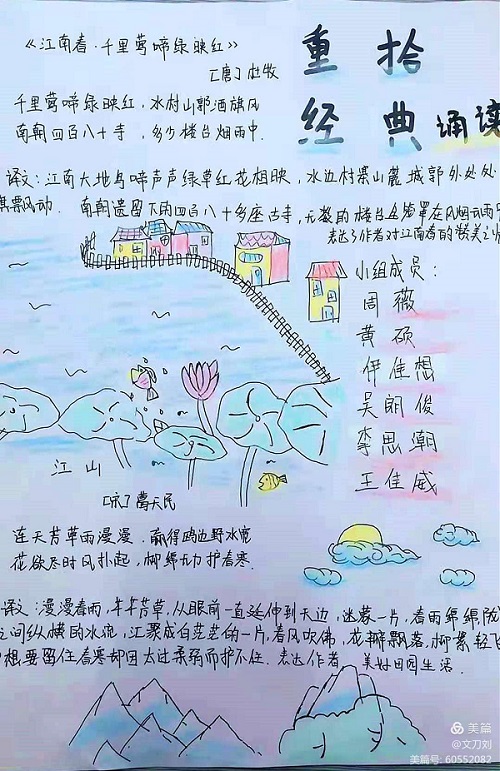 《江南春·千里莺啼绿映红》
[唐]杜牧
千里莺啼绿映红,水村山郭酒旗风
南朝四百八十寺,多少楼台烟雨中.
重拾
经典诵读
译文:江南大地鸟啼声声绿草红花相映,水边村寨山麓城郭处处
旗飘动.南朝遗留下的四百八十多座古寺,无数的楼台全笼罩在风烟雨
表达了作者对江南春的赞美之
小组成员:
周薇
黄硕
伊佳想
吴明俊
李思潮
王佳威
江山
[宋]葛天民
连天芳草雨漫漫,赢得鸥边野水宽
花欲尽时风扑起,柳绵无力护春寒.
译文:漫漫春雨,芊芊芳草,从眼前一直延伸到天边,迷蒙一片,春雨绵绵,陇
之间纵横的水流,汇聚成白茫茫的一片,春风吹佛,花瓣飘落,柳絮轻飞
想要留住春寒却因太过柔弱而护不住.表达作者 美好田园生活.
美篇
@文刀刘
美篇号:60552082